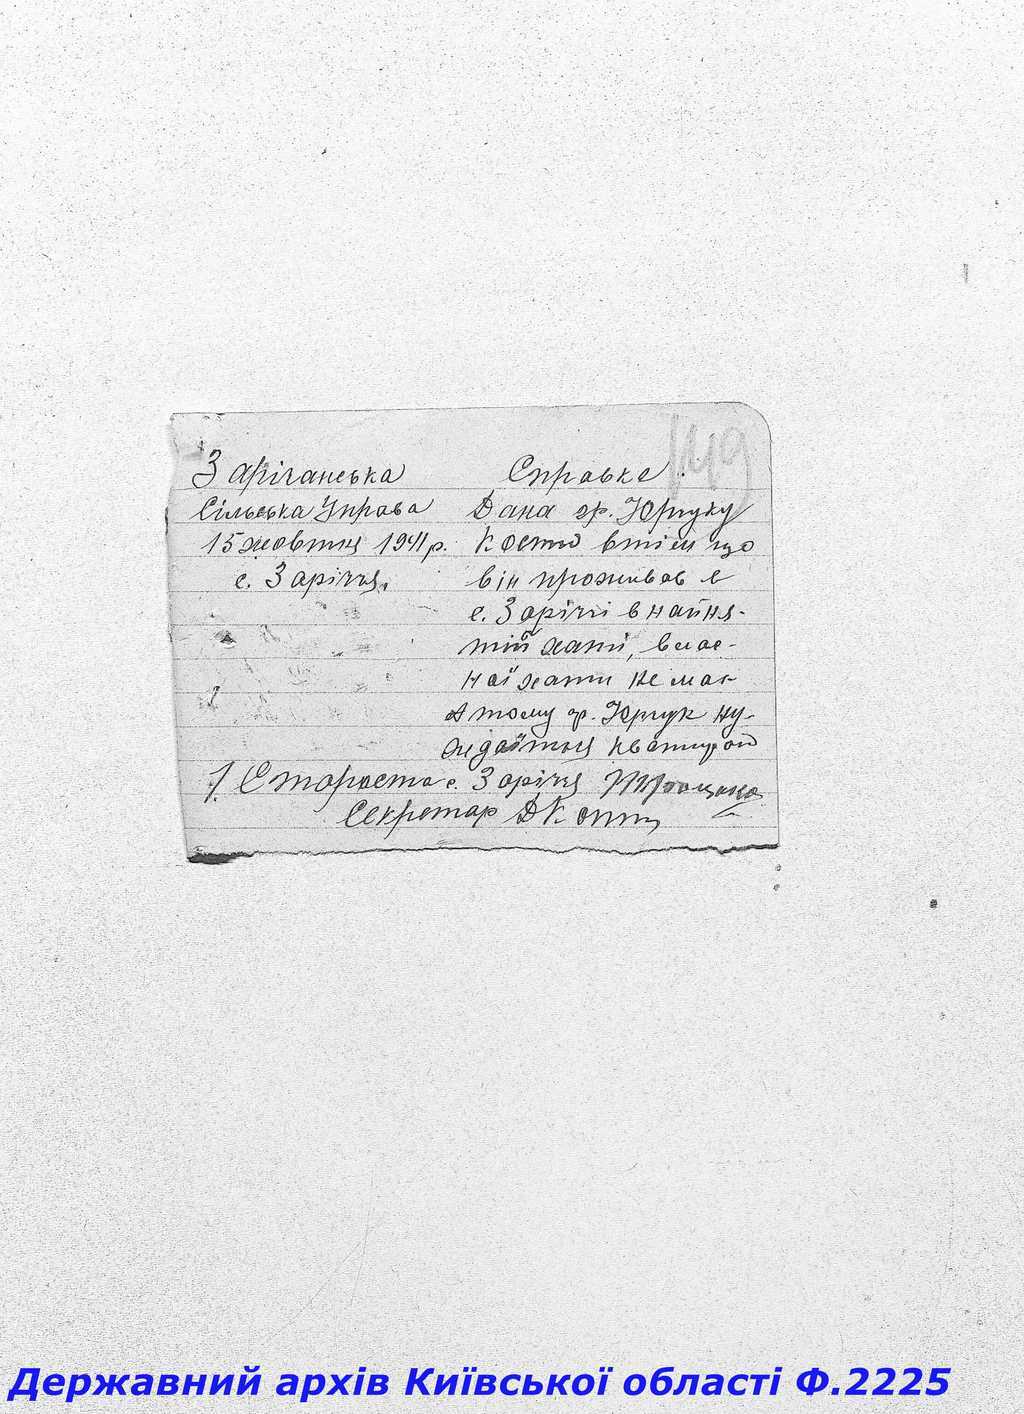 149
Зарічанська
Сільська Управа
15 жовтня 1941 р.
с. Заріччя.
Справка
Дана гр. Юрчуку
Костю втім що
він проживав в
с. Заріччі в найня-
тій хаті, влас-
ної хати не має
А тому гр. Юрчук ну-
ждаїться квартирой
Староста с. Заріччя
Секретар
Державний архів Київської області Ф.2225